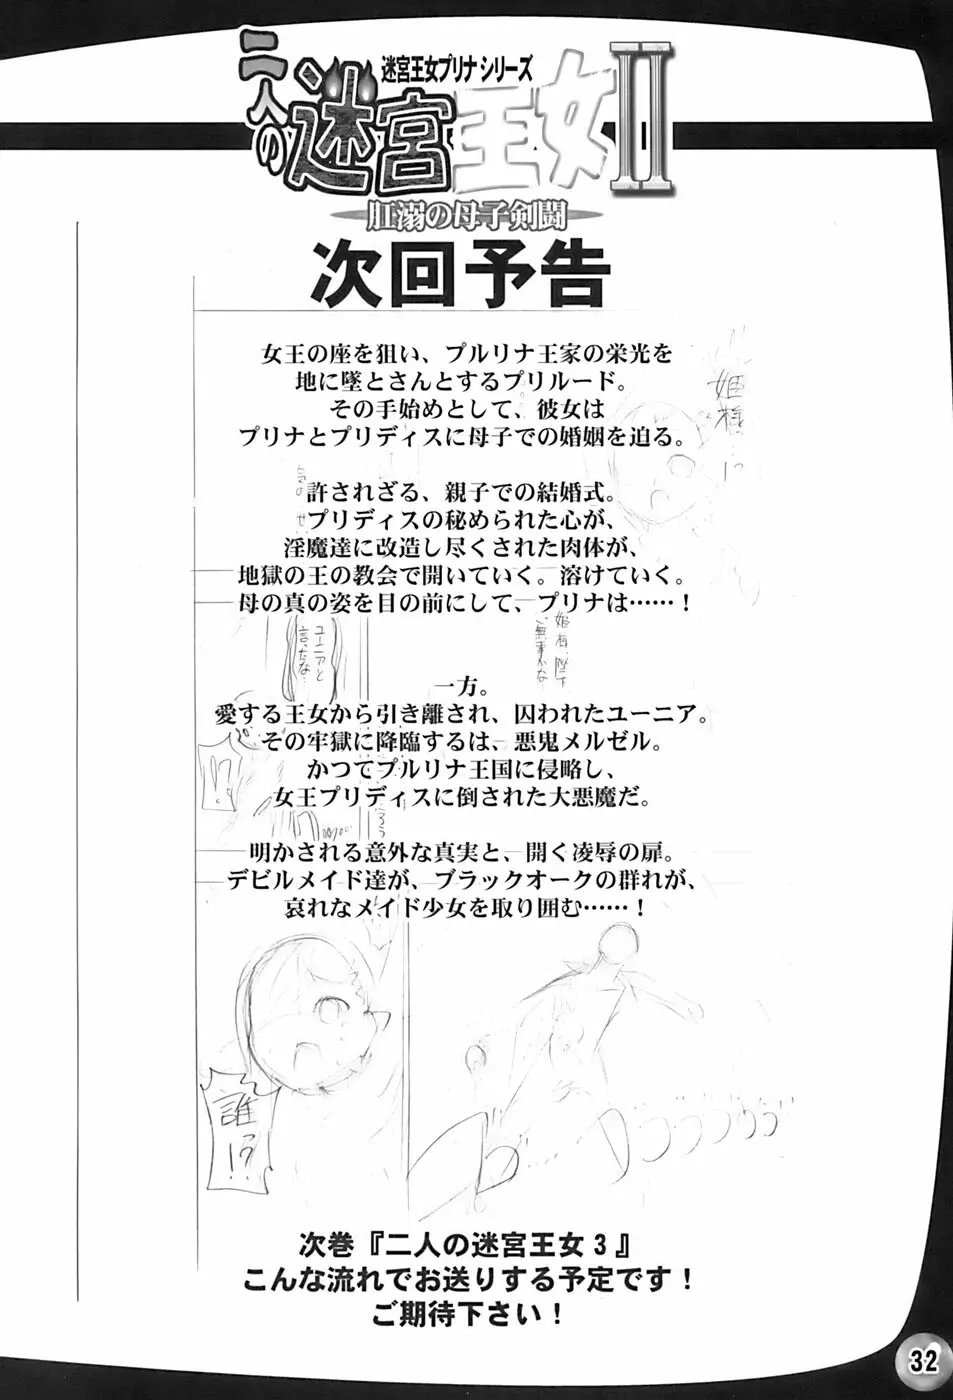 迷宮王女プリナシリーズ
二人の迷宮王女II
肛溺の母子剣闘
次回予告
女王の座を狙い、プルリナ王家の栄光を
地に墜とさんとするプリルード。
その手始めとして、彼女は
プリナとプリディスに母子での婚姻を迫る。
許されざる、親子での結婚式。
プリディスの秘められた心が、
淫魔達に改造し尽くされた肉体が、
地獄の王の教会で開いていく。溶けていく。
母の真の姿を目の前にして、プリナは……！
一方。
愛する王女から引き離され、囚われたユーニア。
その牢獄に降臨するは、悪鬼メルゼル。
かつてプルリナ王国に侵略し、
女王プリディスに倒された大悪魔だ。
明かされる意外な真実と、開く凌辱の扉。
デビルメイド達が、ブラックオークの群れが、
哀れなメイド少女を取り囲む……！
姫様…!?
姫様、陛下
ご無事かな…
ユーニアと
言ったな…
!?
誰!?
次巻『二人の迷宮王女3』
こんな流れでお送りする予定です！
ご期待下さい！
32